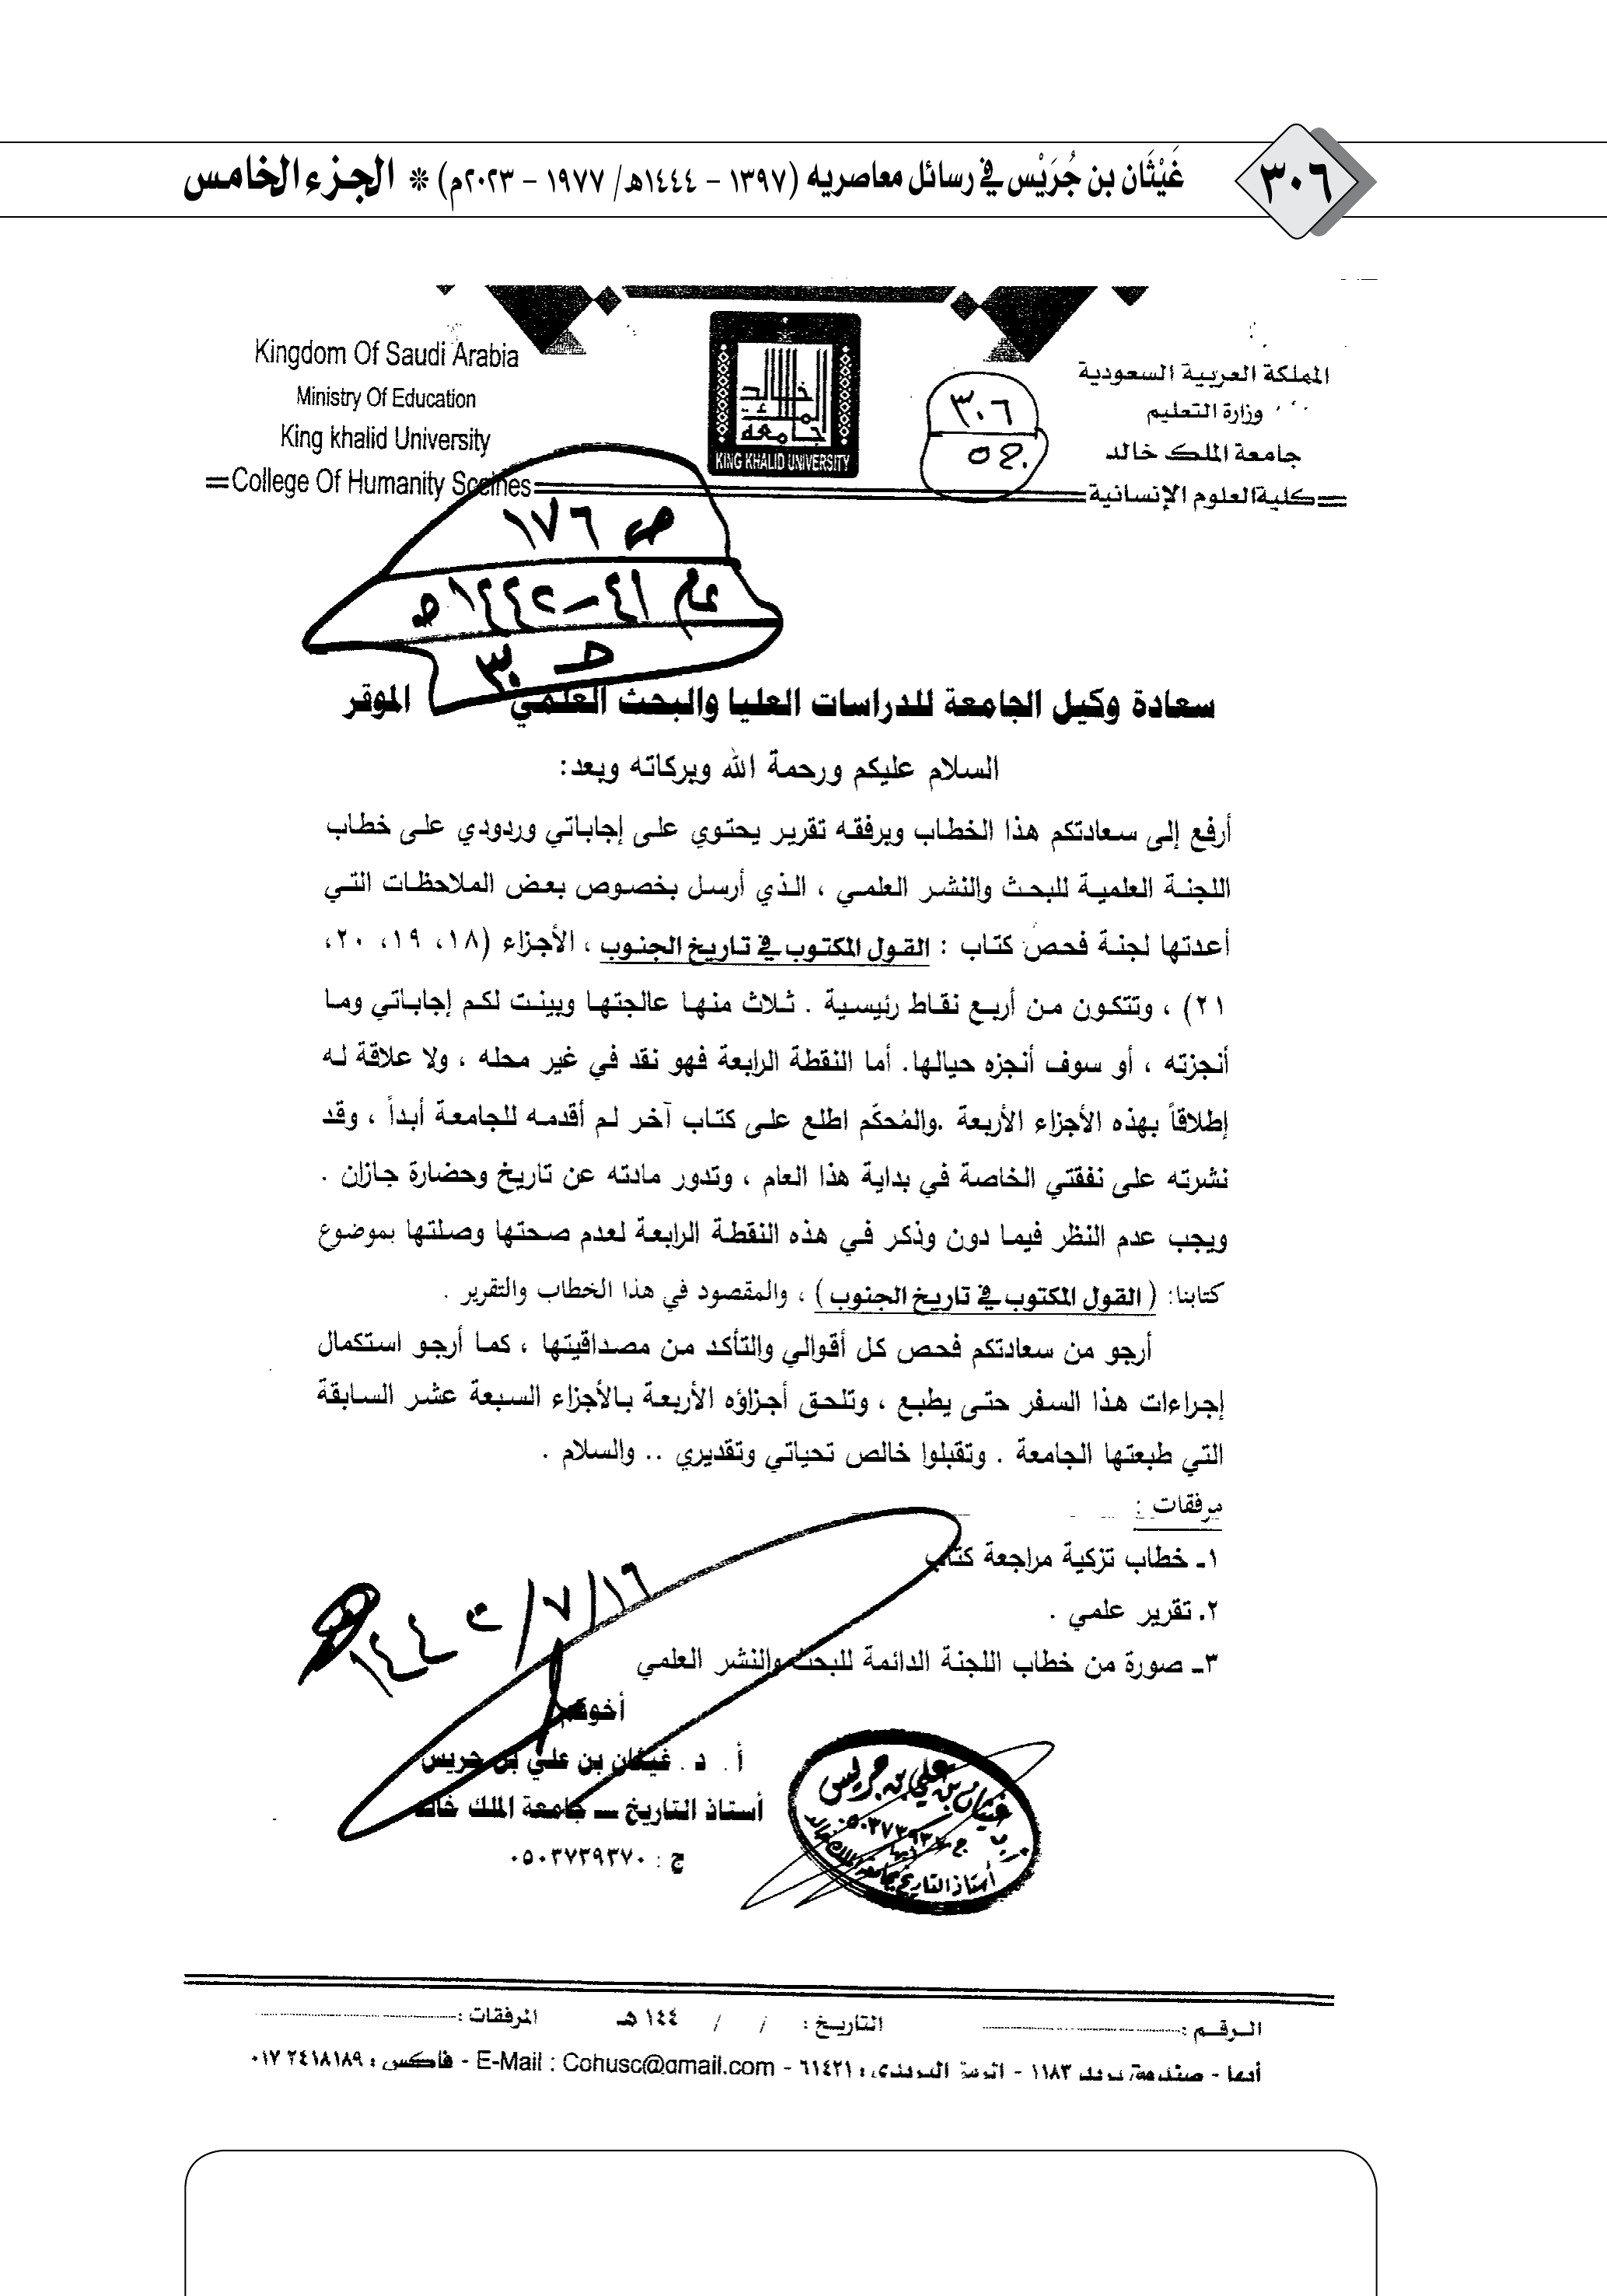 ٣٠٦
غَيْثَان بن جُرَيْس في رسائل معاصريه (١٣٩٧ - ١٤٤٤هـ/ ١٩٧٧ - ٢٠٢٣م) * الجزء الخامس
Kingdom Of Saudi Arabia
Ministry Of Education
King khalid University
College Of Humanity Sceines
جامعة الملك خالد
KING KHALID UNIVERSITY
المملكة العربية السعودية
وزارة التعليم
جامعة الملك خالد
كلية العلوم الإنسانية
٣٠٦
ص ١٧٦
عام ٤١-١٤٤٢هـ
حـ ٣٠
سعادة وكيل الجامعة للدراسات العليا والبحث العلمي الموقر
السلام عليكم ورحمة الله وبركاته وبعد:
أرفع إلى سعادتكم هذا الخطاب ويرفقه تقرير يحتوي على إجاباتي وردودي على خطاب
اللجنة العلمية للبحث والنشر العلمي ، الذي أرسل بخصوص بعض الملاحظات التي
أعدتها لجنة فحص كتاب : القول المكتوب في تاريخ الجنوب ، الأجزاء (١٨، ١٩، ٢٠،
٢١) ، وتتكون من أربع نقاط رئيسية . ثلاث منها عالجتها وبينت لكم إجاباتي وما
أنجزته ، أو سوف أنجزه حيالها. أما النقطة الرابعة فهو نقد في غير محله ، ولا علاقة له
إطلاقاً بهذه الأجزاء الأربعة .والمُحكّم اطلع على كتاب آخر لم أقدمه للجامعة أبداً ، وقد
نشرته على نفقتي الخاصة في بداية هذا العام ، وتدور مادته عن تاريخ وحضارة جازان .
ويجب عدم النظر فيما دون وذكر في هذه النقطة الرابعة لعدم صحتها وصلتها بموضوع
كتابنا: (القول المكتوب في تاريخ الجنوب) ، والمقصود في هذا الخطاب والتقرير .
أرجو من سعادتكم فحص كل أقوالي والتأكد من مصداقيتها ، كما أرجو استكمال
إجراءات هذا السفر حتى يطبع ، وتلحق أجزاؤه الأربعة بالأجزاء السبعة عشر السابقة
التي طبعتها الجامعة . وتقبلوا خالص تحياتي وتقديري .. والسلام .
مرفقات :
١ـ خطاب تزكية مراجعة كتاب
٢. تقرير علمي .
٣ـ صورة من خطاب اللجنة الدائمة للبحث والنشر العلمي
أخوكم
أ . د . غيثان بن علي بن جريس
أستاذ التاريخ ــ جامعة الملك خالد
ج : ٠٥٠٣٧٣٩٣٧٠
غيثان بن علي بن جريس
أستاذ التاريخ بجامعة الملك خالد
الرقم : التاريخ : / / ١٤٤ هـ المرفقات :
أبها - صندوق بريد ١١٨٣ - الرمز البريدي : ٦١٤٢١ - E-Mail : Cohusc@gmail.com - فاكس : ٠١٧ ٢٤١٨١٨٩